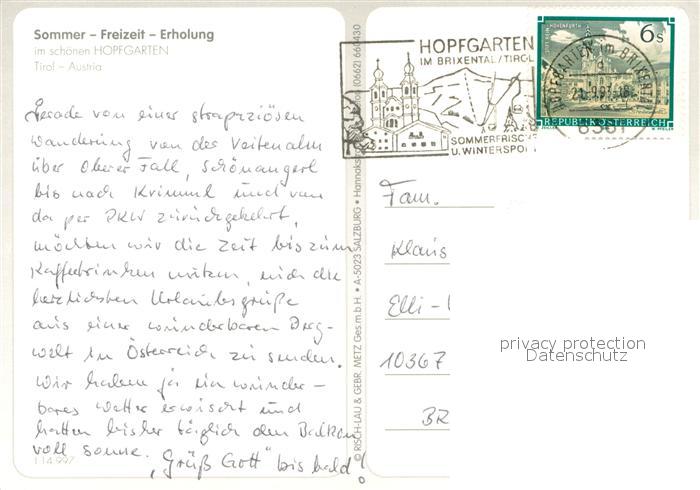 Sommer – Freizeit – Erholung
im schönen HOPFGARTEN
Tirol – Austria
Gerade von einer strapaziösen
Wanderung von der Veitenalm
über Oberer Fall, Schönangerl
bis nach Krimml und von
da per PKW zurückgekehrt,
möchten wir die Zeit bis zum
Kaffeetrinken nutzen, euch die
herzlichsten Urlaubsgrüße
aus einer wunderbaren Berg-
welt in Österreich zu senden.
Wir haben ja ein wunder-
bares Wetter erwischt und
hatten bisher täglich den Balkon
voll Sonne.
„Grüß Gott" bis bald!
114 997
© RISCH-LAU & GEBR. METZ Ges.m.b.H. • A-5023 SALZBURG • (0662) 660430
HOPFGARTEN
IM BRIXENTAL/TIROL
SOMMERFRISCHE
U. WINTERSPO
6361
6 s
REPUBLIK ÖSTERREICH
Fam.
Klaus
Elli -
10367
BR
privacy protection
Datenschutz